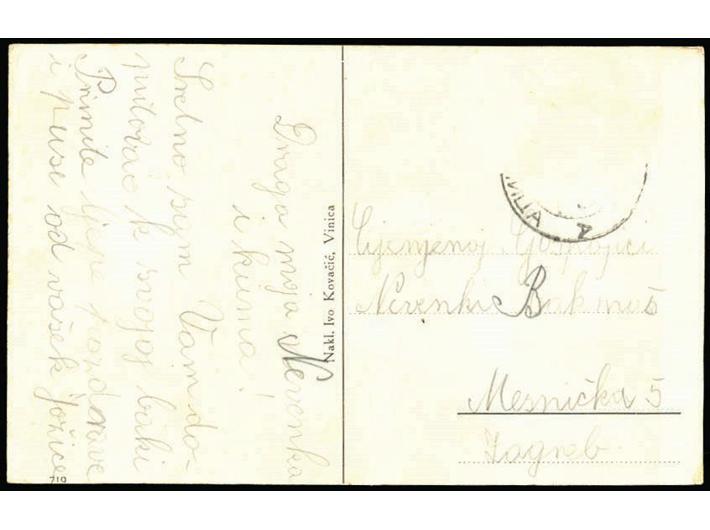 Draga moja Nevenka
i kuma!
Sretno sam Vam do-
putovao k svojoj baki
Primite lijepe pozdrave
i puse od vašek Jožice
Nakl. Ivo Kovačić, Vinica
710
Cijenjenoj Gospojici
Nevenki
Mesnička 5
Zagreb